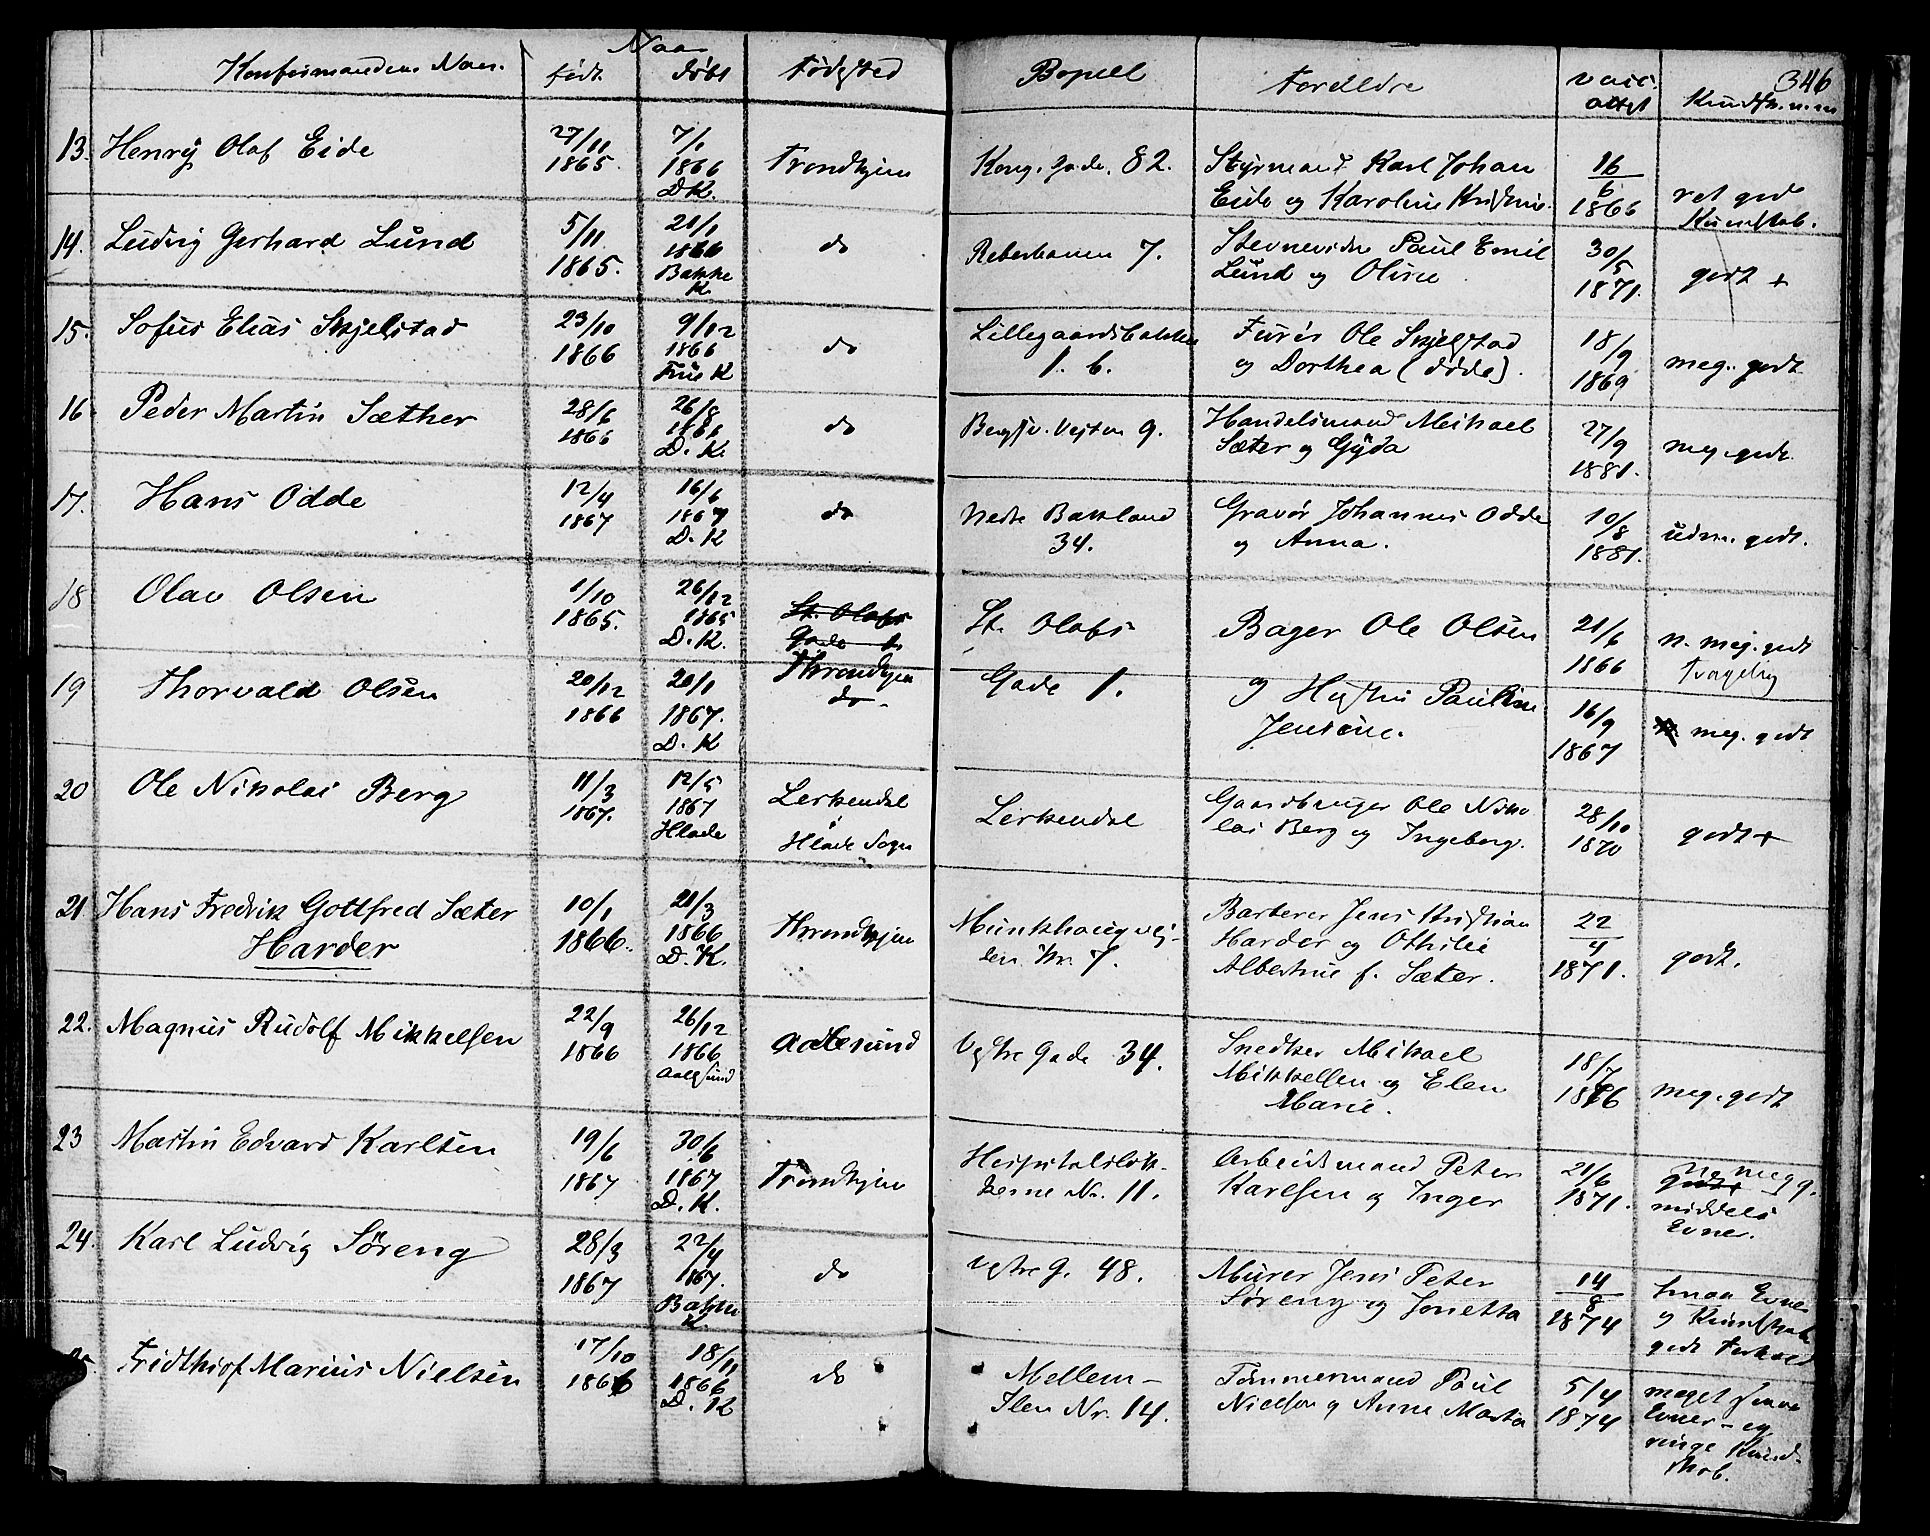 346
Konfirmandens Navn. Naar født døbt Fødested Bopæl Forældre vacc. attest Kundsk.
13. Henry Olaf Eide 27/11 1865. 7/1 1866 D.K. Trondhjem Kong. Gade. 82. Styrmand Karl Johan
Eide og Karoline Kristine. 16/6 1866 ret god
Kundskab.
14. Ludvig Gerhard Lund 5/11 1865. 21/1 1866 Bakke K. do Reberbanen 7. Stevnevidne Paul Emil
Lund og Oline 30/5 1871. godt +
15. Sofus Elias Skjelstad 23/10 1866 9/12 1866 Frue K do Lillegaardsbakken
1. b. Furér Ole Skjelstad
og Dorthea (døde). 18/9 1869 meg. godt
16. Peder Martin Sæther 28/6 1866 26/8 1866 D. K. do Bergsv. Vejten 9. Handelsmand Mikael
Sæter og Gyda 27/9 1881. meg. godt.
17. Hans Odde 12/4 1867 16/6 1867 D. K do Nedre Bakland
34. Gravør Johannes Odde
og Anna. 10/8 1881. udm. godt.
18 Olav Olsen 1/10 1865. 26/12 1865 D. K. St. Olafs
Gade 1.
Throndhjem St. Olafs Bager Ole Olsen 21/6 1866 n. meg. godt
19 Thorvald Olsen 20/12 1866 20/1 1867. D. K do Gade 1. og Hustru Pauline
Jensine. 16/9 1867 meg. godt
20 Ole Nikolai Berg 11/3 1867. 12/5 1867 Hlade Lerkendal
Hlade Sogn Lerkendal Gaardbruger Ole Niko
lai Berg og Ingeborg. 28/10 1870 godt +
21. Hans Fredrik Gottfred Sæter
Harder 10/1 1866. 21/3 1866 D. K. Throndhjem Munkhaugvej-
den Nr. 7. Barberer Jens Kristian
Harder og Othilie
Albertine f. Sæter. 22/4 1871. godt.
22. Magnus Rudolf Mikkelsen 22/9 1866 26/12 1866 Aalesund Aalesund Vestre Gade 34. Snedker Mikael
Mikkelsen og Elen
Marie. 18/7 1876 meg. godt
23 Martin Edvard Karlsen 19/6 1867 30/6 1867 D. K. Trondhjem Hospitalsløk-
kerne Nr. 11. Arbeidsmand Peter
Karlsen og Inger 21/6 1871. meg g.
middels
Evner.
24. Karl Ludvig Søreng 28/3 1867 22/4 1867. Bakke K. do Vestre G. 48. Murer Jens Peter
Søreng og Jonetta 14/8 1874 smaa Evner
og Kundskab
godt Forhold
25. Fridthjof Marius Nielsen 17/10 1866 18/11 1866 D. K do Mellem-
Ilen Nr. 14. Tømmermand Paul
Nielsen og Anne Marta 5/4 1874 meget smaa
Evner - og
ringe Kund-
skab.